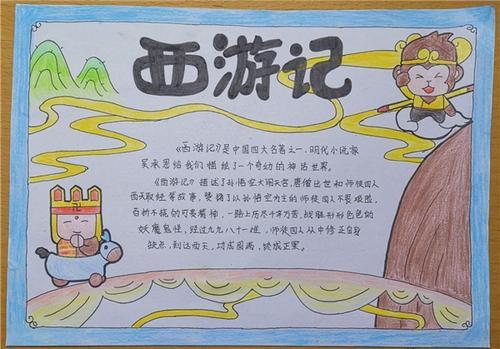 西游记
《西游记》是中国四大名著之一，明代小说家
吴承恩给我们描绘了一个奇幻的神话世界。
《西游记》描述了孙悟空大闹天宫，唐僧出世和师徒四人
西天取经等故事，赞颂了以孙悟空为主的师徒四人不畏艰险，
百折不挠的可贵精神，一路上历尽千辛万苦，战胜形形色色的
妖魔鬼怪，经过九九八十一难，师徒四人从中修正自身
缺点，到达西天，功成圆满，终成正果。
卍